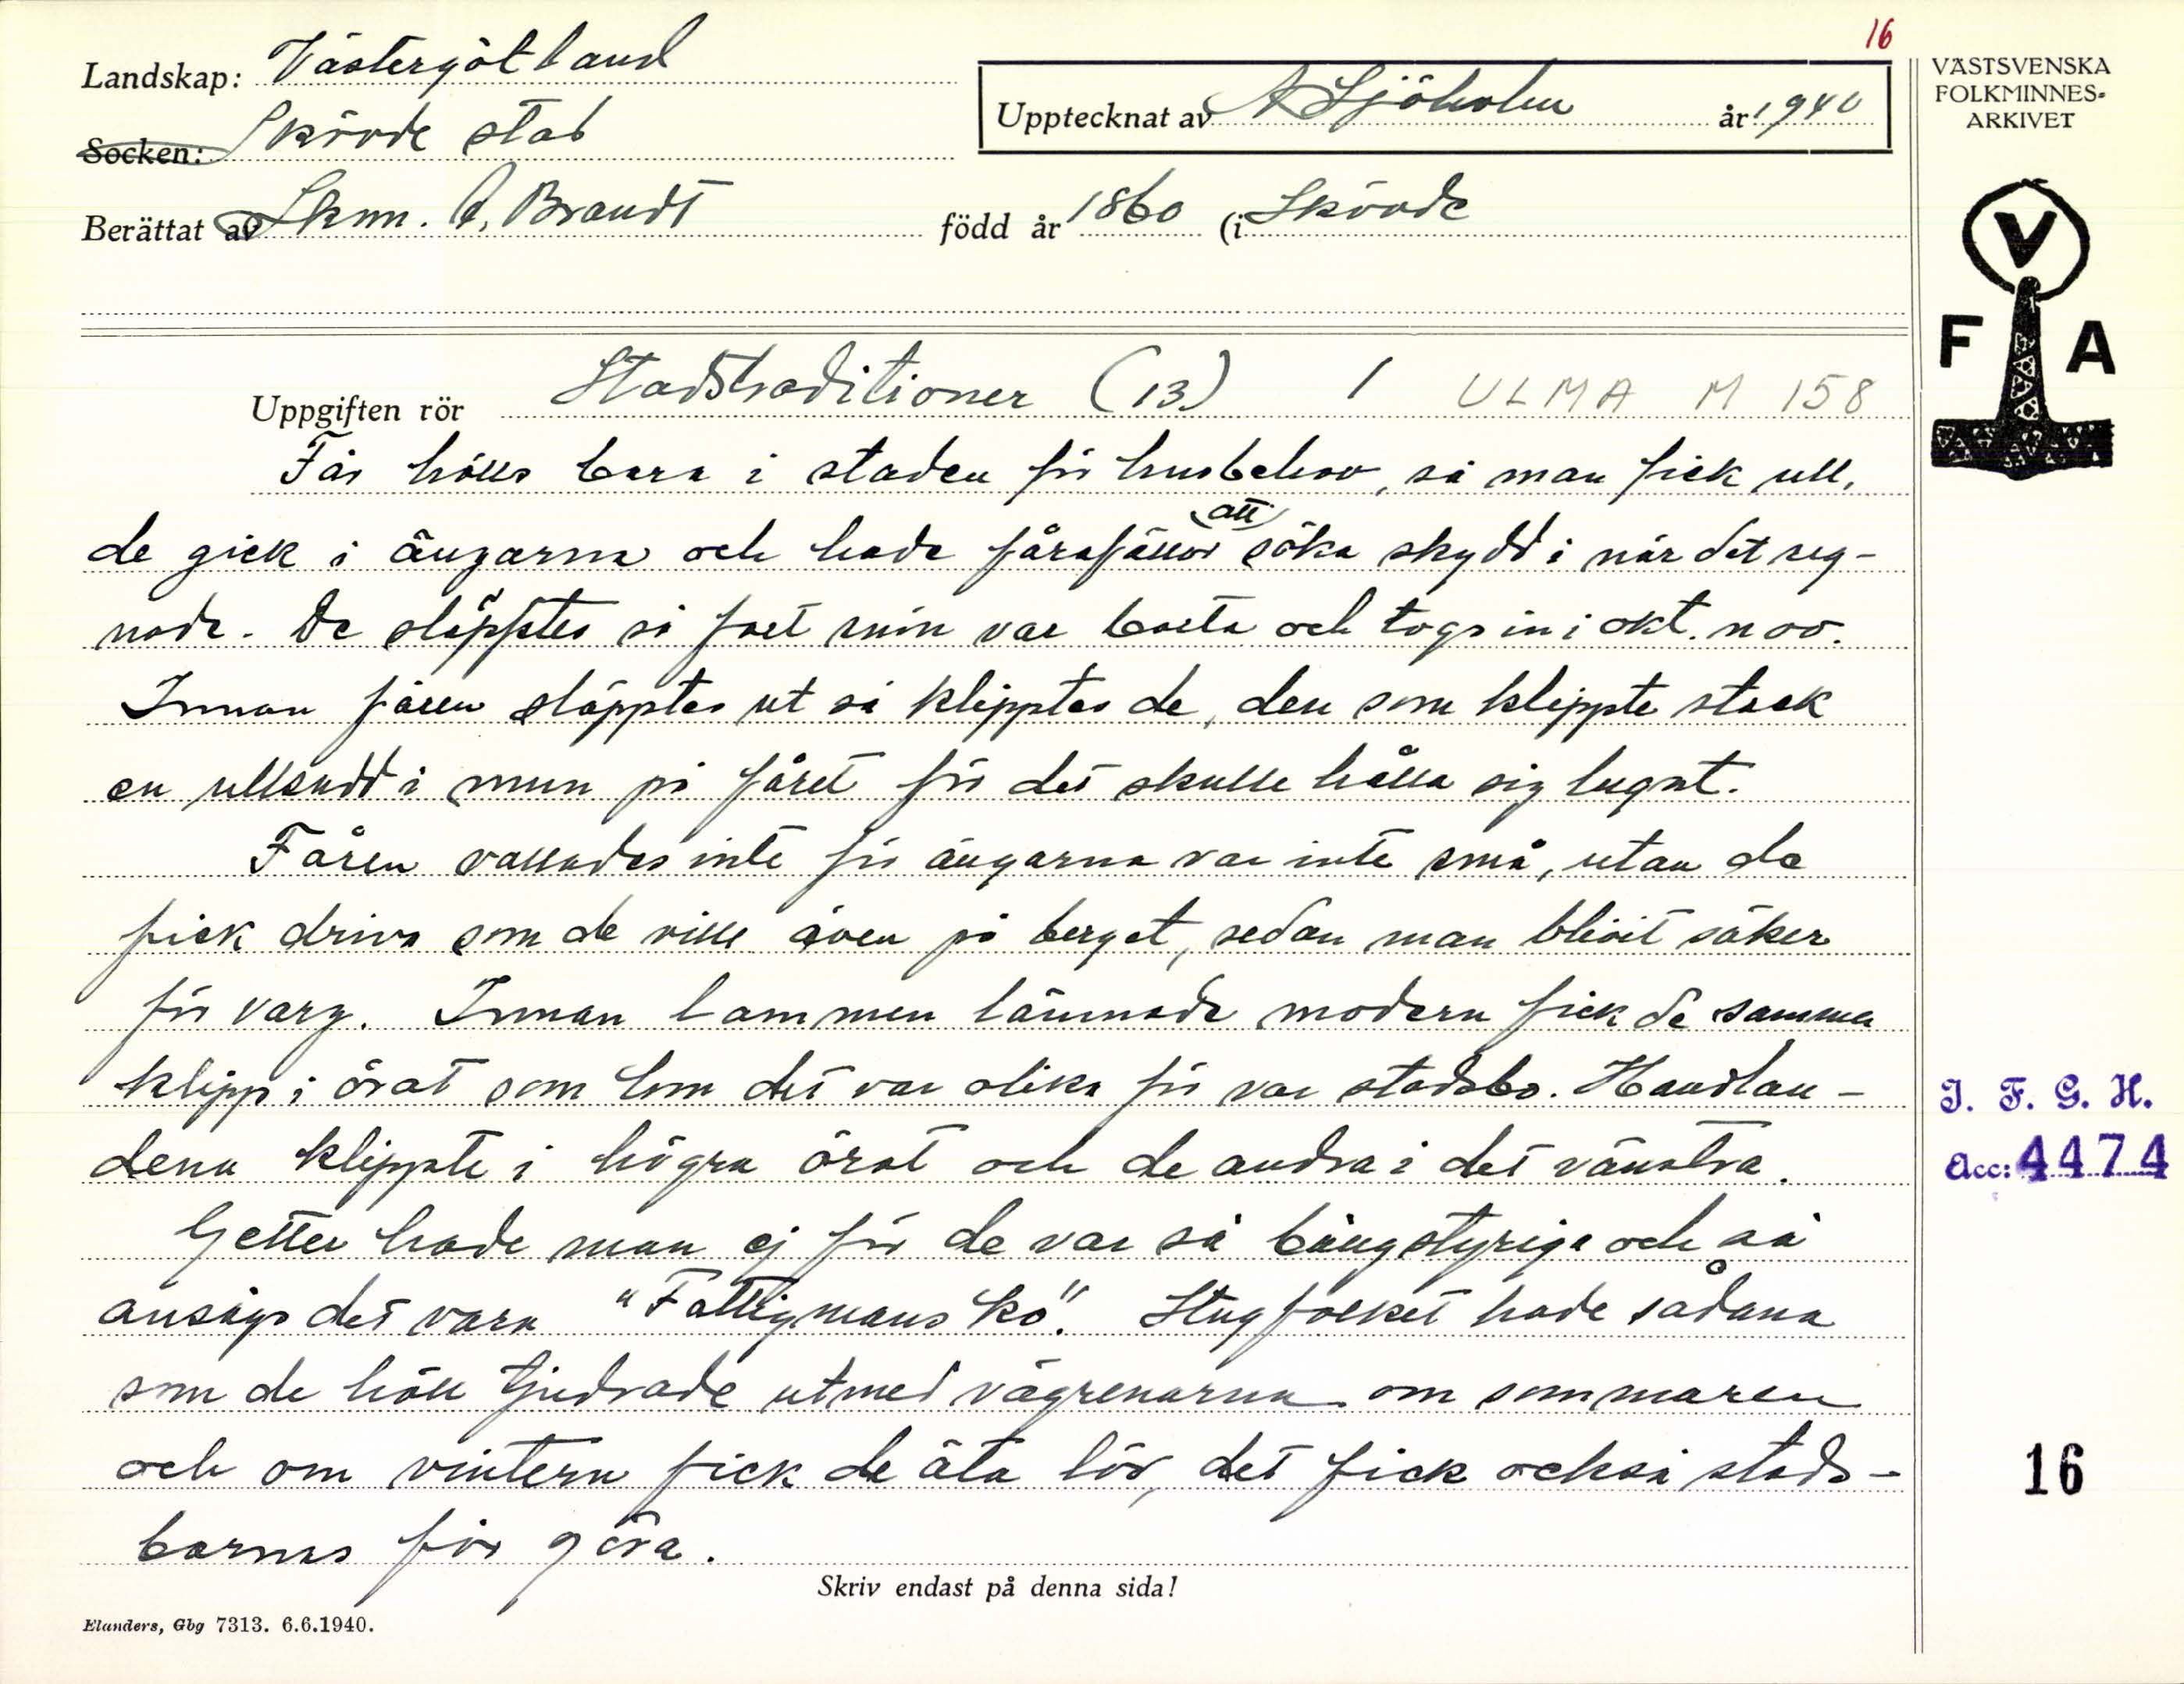 16
Landskap: Västergötland
Upptecknat av A Sjöholm år 1940
Socken: Skövde stad
Berättat av Skm. A. Brandt född år 1860 (i Skövde
VÄSTSVENSKA
FOLKMINNES-
ARKIVET
V
F A
Uppgiften rör Stadstraditioner (13) 1 ULMA M 158
Får hölls bara i staden för husbehov, så man fick ull,
de gick i ängarna och hade fårafållor att söka skydd i när det reg-
nade. De släpptes så fort snön var borta och togs in i okt. nov.
Innan fåren släpptes ut så klipptes de, den som klippte stack
en ullsudd i mun på fåret för det skulle hålla sig lugnt.
Fåren vallades inte för ängarna var inte små, utan de
fick driva som de ville även på berget, sedan man blivit säker
för varg. Innan lammen lämnade modern fick de samma
klipp i örat som hon det var olika för var stadsbo. Handlan-
dena klippte i högra örat och de andra i det vänstra.
Getter hade man ej för de var så bångstyriga och så
ansågs det vara "Fattigmans ko". Stugfolket hade sådana
som de höll tjudrade utmed vägrenarna om sommaren
och om vintern fick de äta löv, det fick också stads-
barnas får göra.
J. F. G. H.
Acc: 4474
16
Skriv endast på denna sida!
Elanders, Gbg 7313. 6.6.1940.